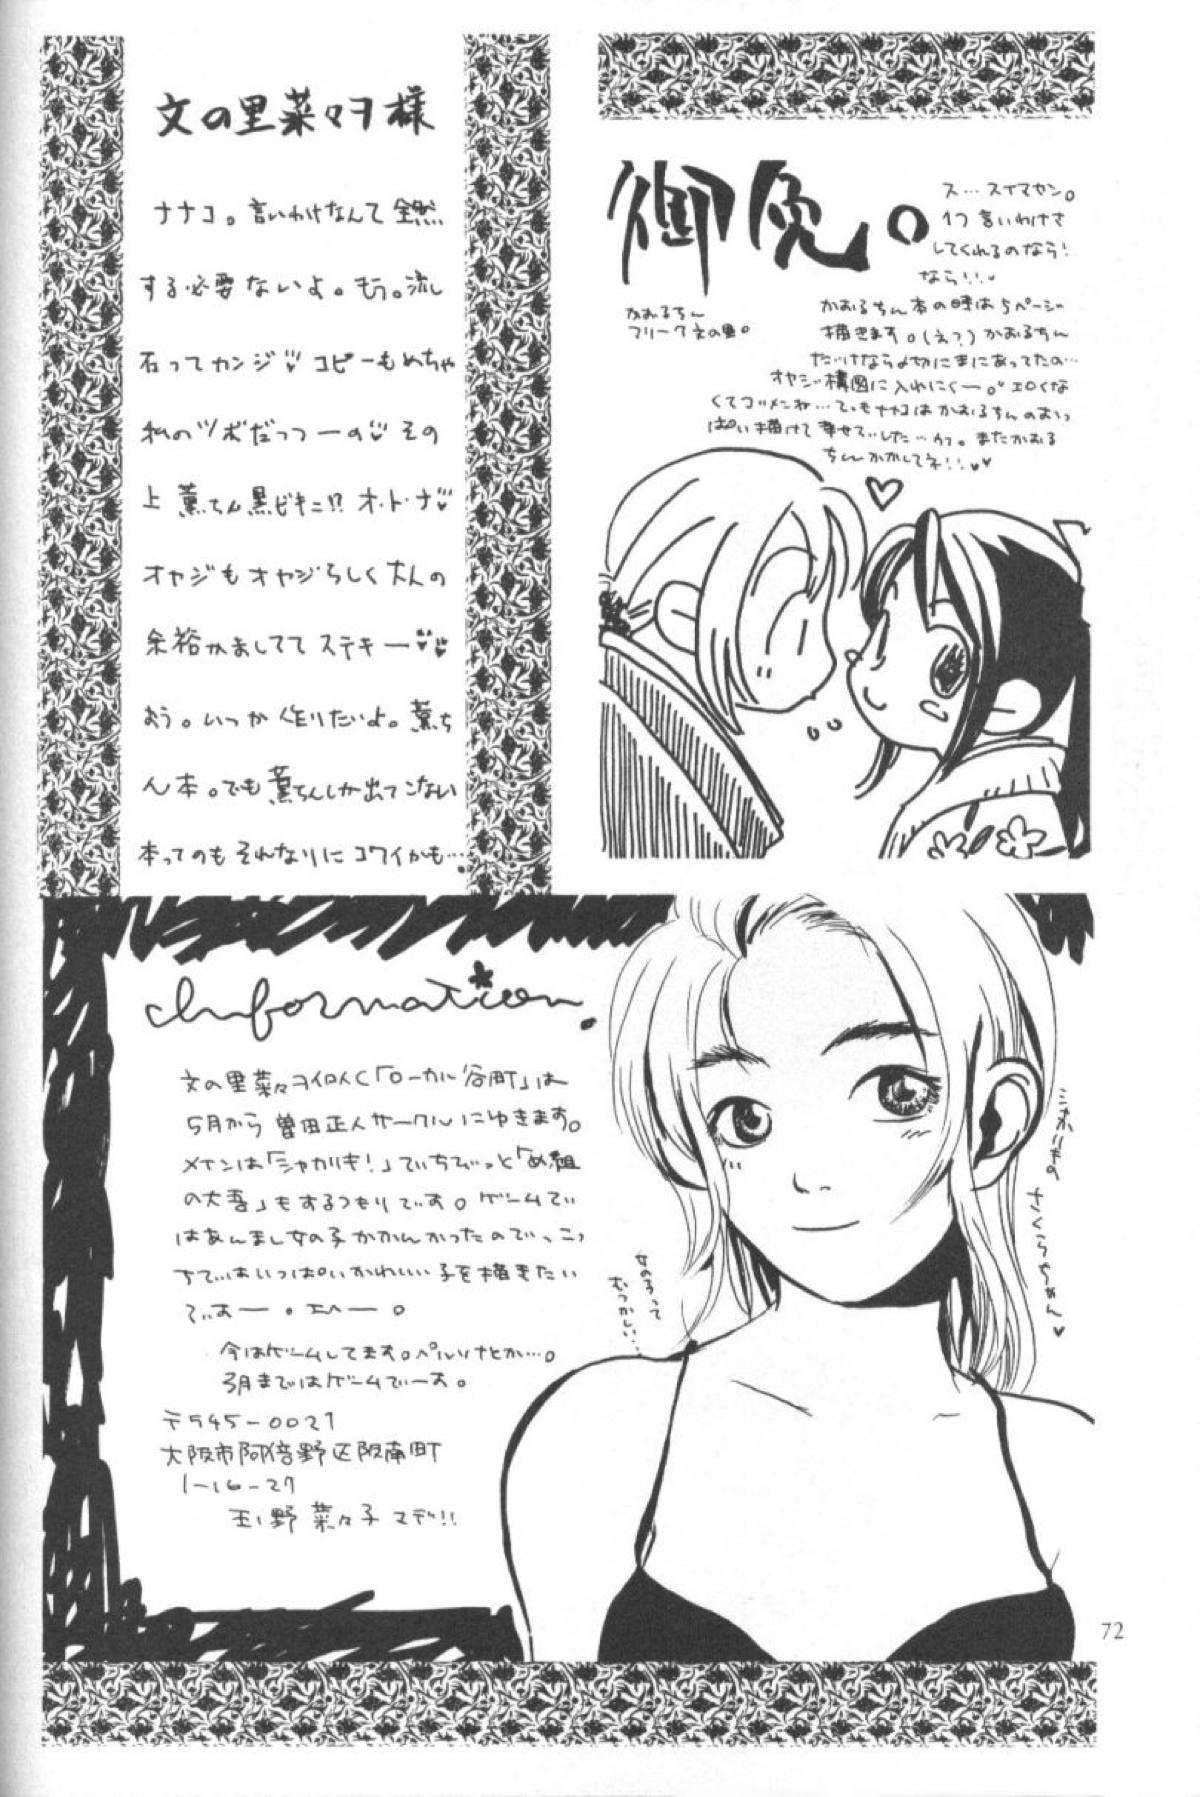 文の里菜々ヲ様
ナナコ。言いわけなんて全然
する必要ないよ。もう。流
石ってカンジ♥コピーもめちゃ
私のツボだっつーの♥その
上薫ちん黒ビキニ!?オ・ト・ナ♥
オヤジもオヤジらしく大人の
余裕かましててステキー♥♥
おう。いつか作りたいよ。薫ち
ん本。でも薫ちんしか出てこない
本ってのもそれなりにコワイかも…
御免。
かおるちん
フリーク文の里。
ス…スイマセン。
1つ言いわけさ
してくれるのなら!
なら!!♥
かおるちん本の時は5ページ
描きます。(え?)かおるちん
だけなら〆切にまにあってたの…
オヤジ構図に入れにくー。エロくな
くてゴメンね…でもナナコはかおるちんのおっ
ぱい描けて幸せでした…ウフ。またかおる
ちんかかしてネ!!♥♥
Information.
文の里菜々ヲイロイく「ローカル谷町」は
5月から曽田正人サークルにゆきます。
メインは「シャカリキ!」でちびっと「め組
の大吾」もするつもりです。ゲームで
はあんまし女の子かかんかったので、こっ
ちではいっぱいかわいい子を描きたい
でおー。エヘー。
今はゲームしてます。ペルソナとか…。
3月まではゲームでーす。
〒545-0021
大阪市阿倍野区阪南町
1-16-27
玉ノ野菜々子マデ!!
女の子って
むつかしい…
シャカリキの
さくらやかん♥
72